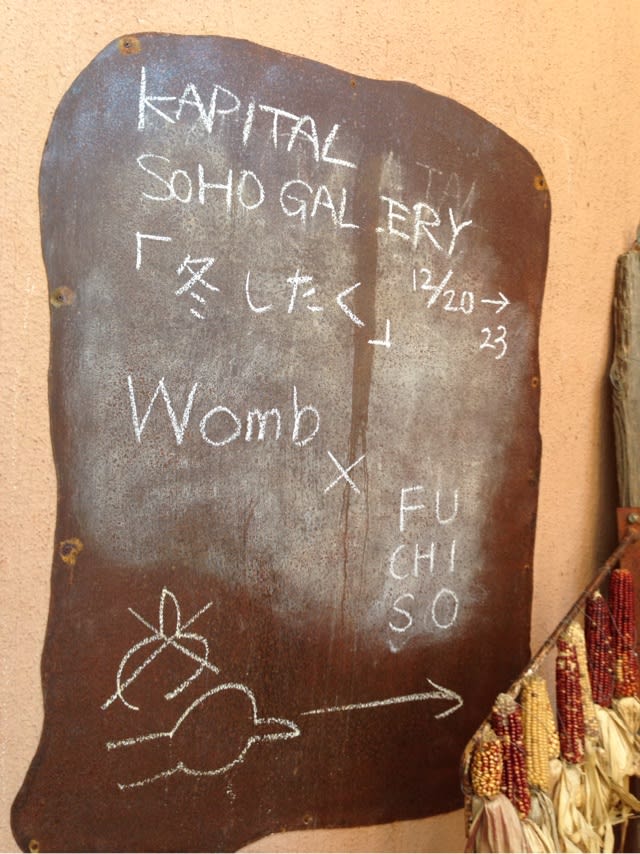 KAPITAL
SOHO GALLERY
「冬したく」 12/20→
23
Womb
×
FU
CHI
SO